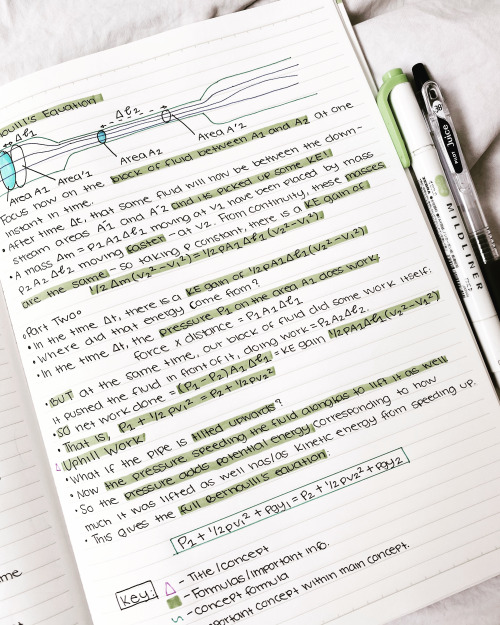 oulli's Equation
Δℓ1
Δℓ2
Area A1
Area A'1
Area A2
Area A'2
Focus now on the block of fluid between A1 and A2 at one
instant in time.
• After time Δt, that same fluid will now be between the down-
stream areas A'1 and A'2 and its picked up some KE!
• A mass Δm = ρ1A1Δℓ1 moving at v1 have been placed by mass
ρ2A2Δℓ2 moving faster - at v2. From continuity, these masses
are the same - so taking ρ constant, there is a KE gain of
1/2Δm(v2²-v1²)=1/2ρA1Δℓ1(v2²-v1²)
◦Part Two◦
• In the time Δt, there is a KE gain of 1/2ρA1Δℓ1(v2²-v1²)
• Where did that energy come from?
• In the time Δt, the pressure P1 on the area A1 does work
force x distance = P1A1Δℓ1
• BUT at the same time, our block of fluid did some work itself:
it pushed the fluid in front of it, doing work=P2A2Δℓ2
• SO net work done = (P1-P2)A1Δℓ1 = KE gain 1/2ρA1Δℓ1(v2²-v1²)
• That is, P1 + 1/2ρv1² = P2 + 1/2ρv2²
Δ Uphill Work
• What if the pipe is tilted upwards?
• Now the pressure speeding the fluid along has to lift it as well
• So the pressure adds potential energy corresponding to how
much it was lifted as well has/as kinetic energy from speeding up.
• This gives the full Bernoulli's equation:
P1 + 1/2ρv1² + ρgy1 = P2 + 1/2ρv2² + ρgy2
Key:
Δ - Title/concept
- Formulas/important info.
~ - concept formula
portant concept within main concept.
ime
t
MILDLINER
Juice
PILOT